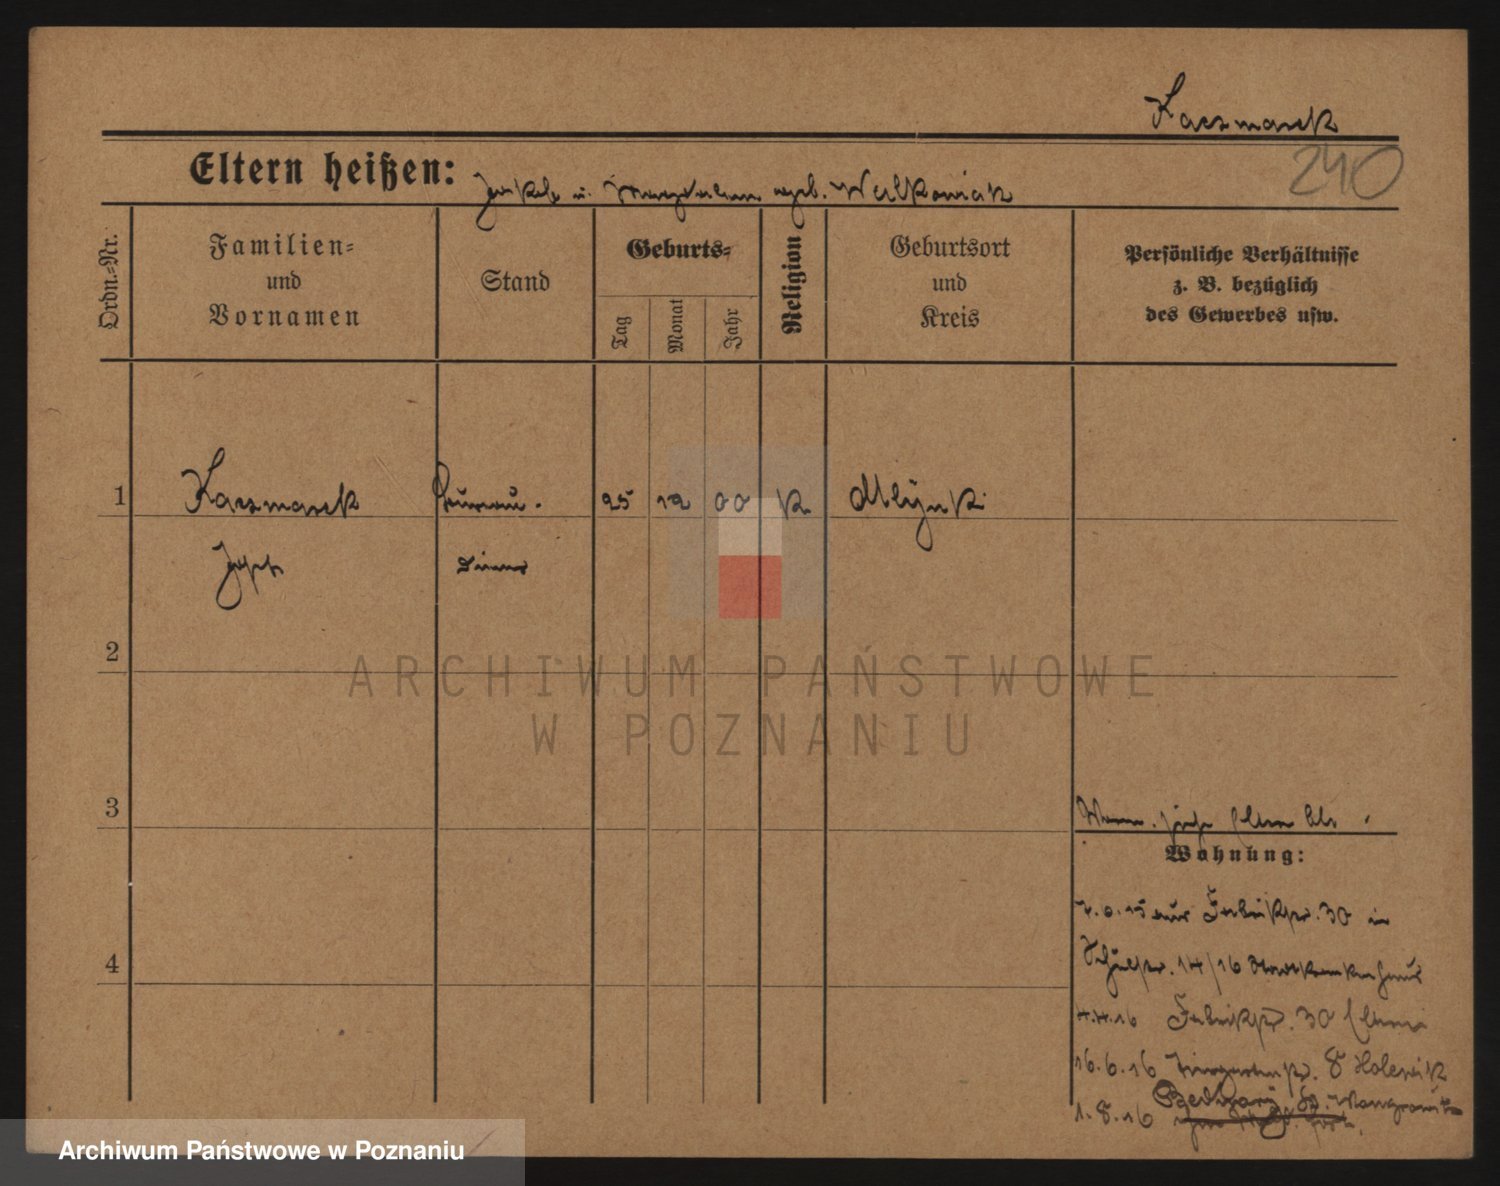 Kaczmarek
240
Eltern heißen: Jakob u. Magdalena geb. Walkowiak
Ordn.=Nr.
Familien=
und
Vornamen
Stand
Geburts=
Tag
Monat
Jahr
Religion
Geburtsort
und
Kreis
Persönliche Verhältnisse
z. B. bezüglich
des Gewerbes usw.
1 Kaczmarek 25 12 00 K.
Josef Diener
2
ARCHIWUM PAŃSTWOWE
W POZNANIU
3
siehe Eltern
Wohnung:
aus Fabrikstr. 30 in
Schulstr. 14/16 Stadtkrankenhaus
4
4.4.16 Fabrikstr. 30 Eltern
16.6.16 Tiergartenstr. 8
1.8.16
Archiwum Państwowe w Poznaniu